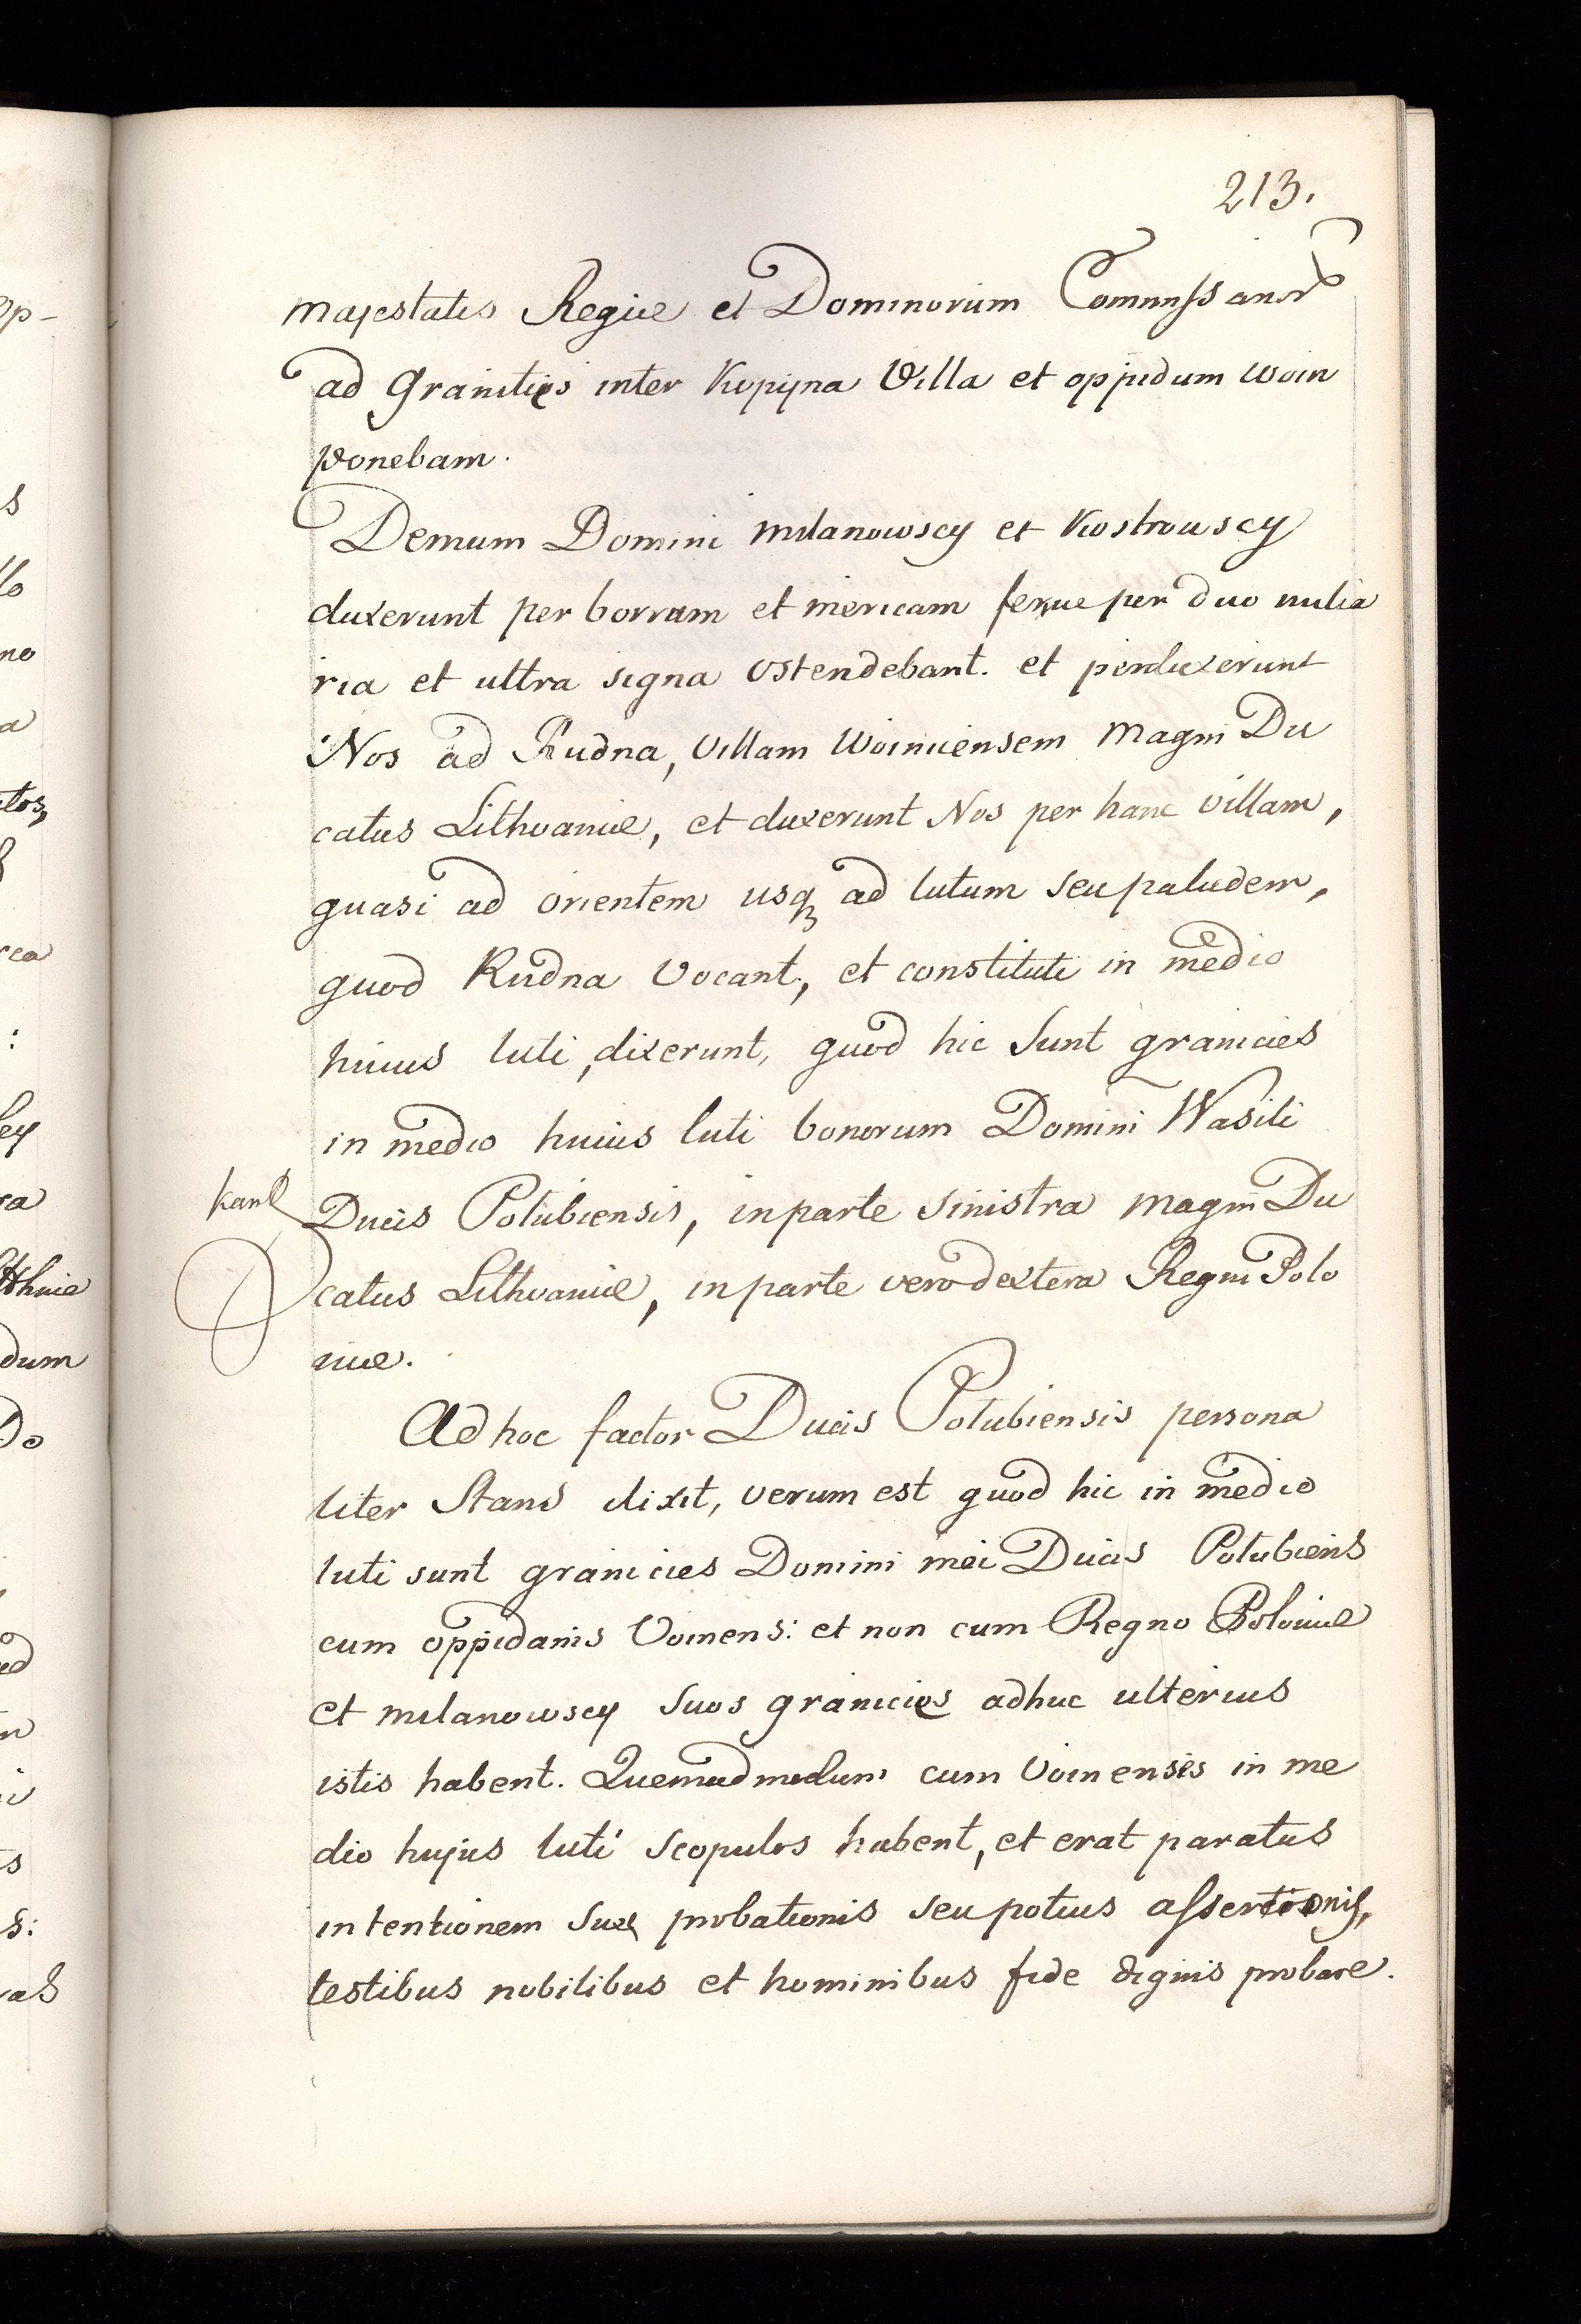 213.
majestatis Regiæ et Dominorum Commissarior
ad Granities inter Kopyna Villa et oppidum Woin
ponebam.
Demum Domini Milanowscy et Kostrowscy
duxerunt per borram et mericam ferme per duo millia
ria et ultra signa ostendebant. et perduxerunt
Nos ad Rudna, Villam Woiniensem Magni Du
catus Lithvaniæ, et duxerunt Nos per hanc villam,
quasi ad orientem usq ad lutum seu paludem,
quod Rudna vocant, et constituti in medio
huius luti, dixerunt, quod hic sunt granicies
in medio huius luti bonorum Domini Wasili
Ducis Polubiensis, in parte sinistra Magni Du
catus Lithvaniæ, in parte vero dextera Regni Polo
niæ.
Ad hoc factor Ducis Polubiensis persona
liter stans dixit, verum est quod hic in medio
luti sunt granicies Domini mei Ducis Polubiens
cum oppidanis Voinens: et non cum Regno Poloniæ
et Milanowscy suos granicies adhuc ulterius
istis habent. Quemadmodum cum Voinenses in me
dio hujus luti scopulos habent, et erat paratus
intentionem suæ probationis seu potius assertionis,
testibus nobilibus et hominibus fide dignis probare.